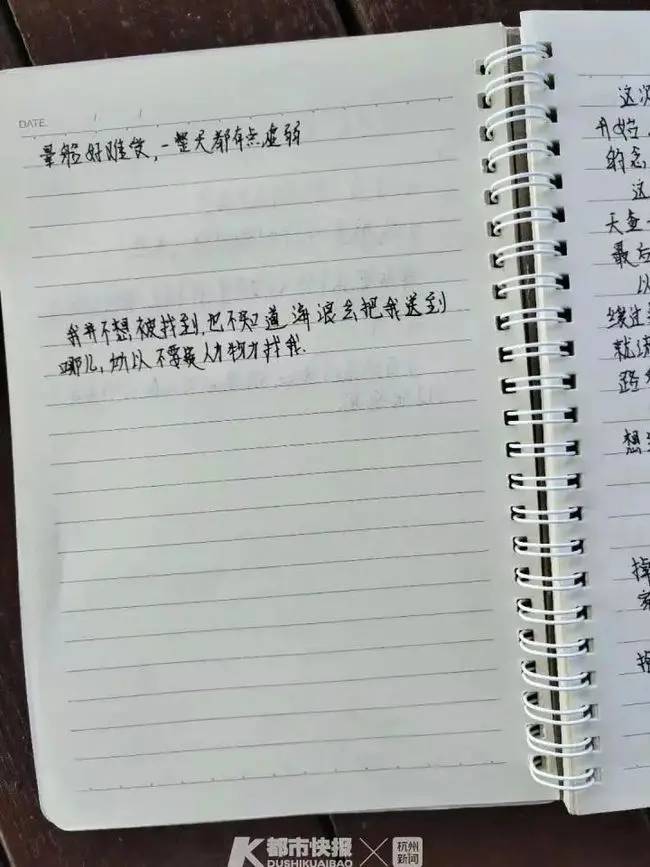 DATE. / /
晕船好难受，一整天都有点虚弱
我并不想被找到，也不知道海浪会把我送到
哪儿，所以不要费人力物力找我.
这次
开始，
的念
这
天查
最后
以
绕过
就
路
想
掉
家
K都市快报
DUSHIKUAIBAO
杭州
新闻